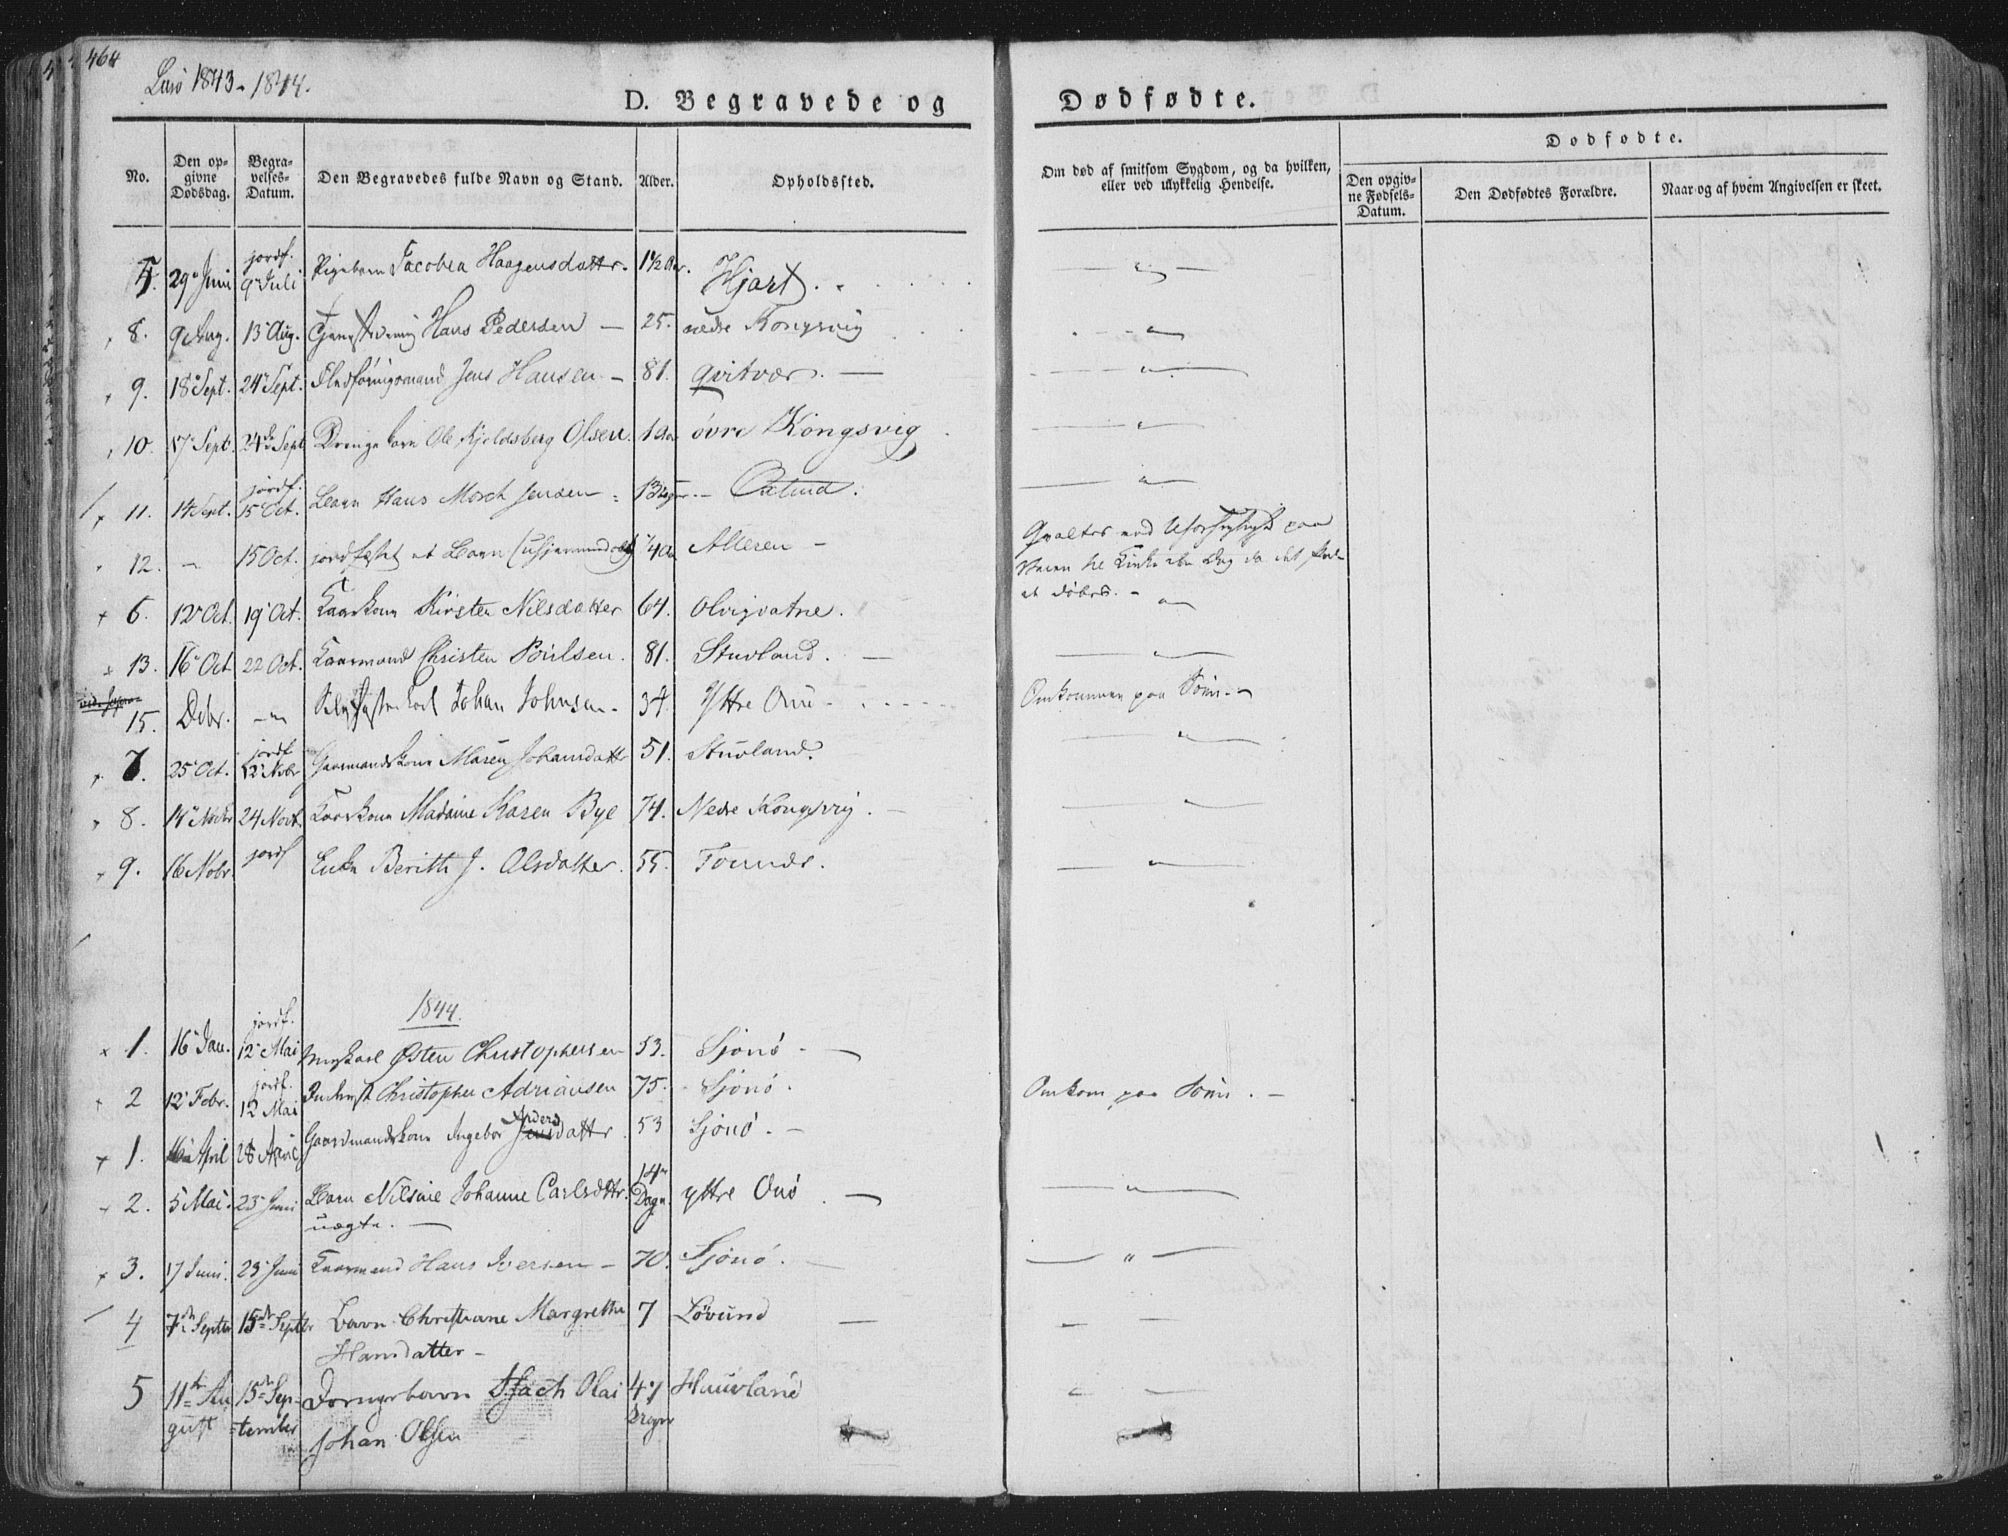 464
Lurö 1843-1844.
D. Begravede og Dødfødte.
No.
Den opgivne Dødsdag.
Begravelses-Datum.
Den Begravedes fulde Navn og Stand.
Alder.
Opholdssted.
Om død af smitsom Sygdom, og da hvilken, eller ved ulykkelig Hendelse.
Dødfødte.
Den opgivne Fødsels-Datum.
Den Dødfødtes Forældre.
Naar og af hvem Angivelsen er skeet.
5. 29 Juni jordf. 9 Juli Pigebarn Jacobea Haagensdatter. 1 1/2 Aar. Hjart. — " —
8. 9 Aug. 13 Aug. Hans Pedersen — 25. nedre Kongsvig — " —
9. 18 Sept. 24 Sept. Jens Hansen — 81. Qvitvær. — — " —
10. 17 Sept. 24de Sept. Drengebarn Ole Kjeldsberg Olsen. 1 Aar øvre Kongsvig — " —
11. 14 Sept. jordf. 15 Oct. Barn Hans Morch Jensen — 13 Dage — " —
12. — 15 Oct. jordfæstet et Barn 1/4 Aar Alteren — Qvaltes ved Uforsigtighed paa
Veien til Kirke den Dag da det skulde
at døbes. —
6. 12 Oct. 19 Oct. Kaarkone Kirsten Nilsdatter 64. Olvigvatne. "
13. 16 Oct. 22 Oct. Kaarmand Christen Poulsen. 81. Stuvland. — — " —
15. Debr. — " Johan Johnsen. 34. Yttre Onø — Omkommen paa Søen. —
7. 25 Oct. jordf. 12 Nobr Gaardmandskone Maren Johansdattr 51. Stuvland. — " —
8. 14 Nobr 24 Nov. Kaarkone Madame Karen Bye 74. Nedre Kongsvig. — — " —
9. 16 Nobr. jordf Enke Berith J. Olsdatter. 55. Tonnes. — " —
1844.
1. 16 Jan. jordf. 12 Mai Østen Christophersen 53. Sjonø. —
2 12 Febr. jordf. 12 Mai Christopher Adriansen 75. Sjonø. Omkom paa Søen. —
1. 16 April 28 April Gaardmandskone Ingebor Anders datter. 53 Sjonø. —
2. 5 Mai. 23 Juni Barn Nilsine Johanne Carlsdttr. 14 Dage. yttre Onø. — — " —
uægte. —
3. 17 Juni. 23 Juni Kaarmand Hans Iversen — 70. Sjonø. — — " —
4 7de Septbr 15de Septbr Barn Christiane Margrethe 7 Lovund — " —
Hansdatter —
5 11te Au 15de Sep- Drengebarn Olai 4 Huuvland — " —
gust tember Johan Olsen